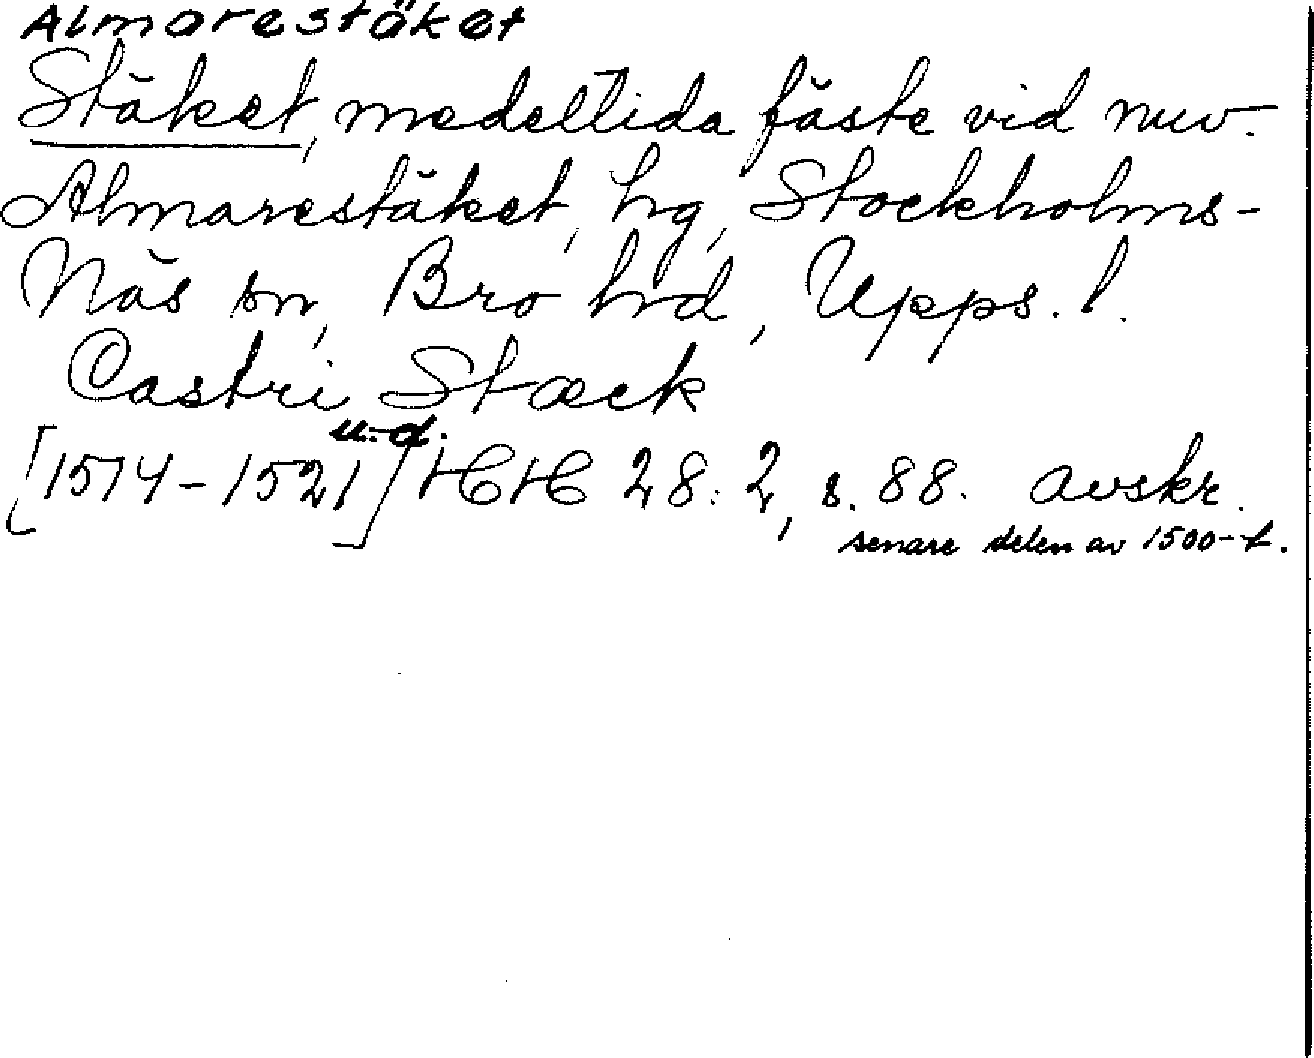 Almarestäket
Stäket, medeltida fäste vid nuv.
Almarestäket, hg, Stockholms-
Näs sn, Bro hd, Upps. l.
Castri Stæck
u.d.
[1514-1521] HH 28:2, s. 88. avskr.
senare delen av 1500-t.